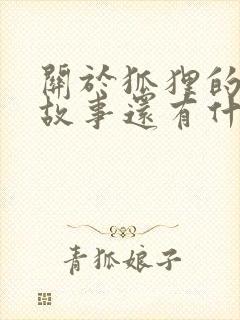 關於狐狸的
故事還有什
青狐娘子